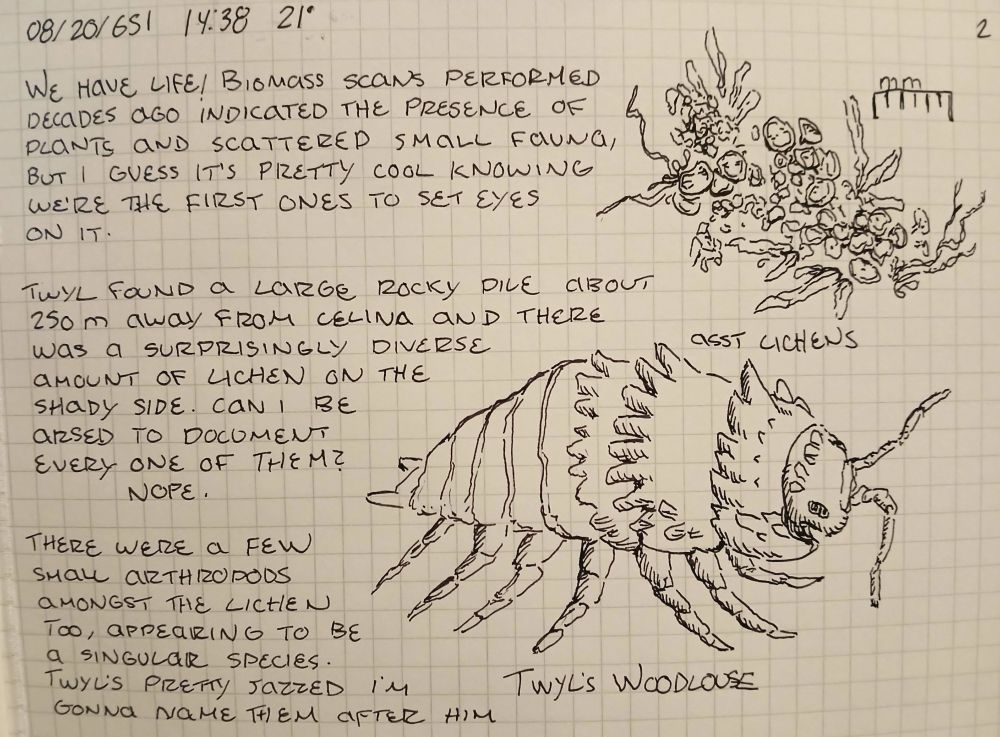 08/20/651 14:38 21°
2
WE HAVE LIFE! BIOMASS SCANS PERFORMED
DECADES AGO INDICATED THE PRESENCE OF
PLANTS AND SCATTERED SMALL FAUNA,
BUT I GUESS IT'S PRETTY COOL KNOWING
WE'RE THE FIRST ONES TO SET EYES
ON IT.
mm
TWYL FOUND A LARGE ROCKY PILE ABOUT
250 m AWAY FROM CELINA AND THERE
WAS A SURPRISINGLY DIVERSE
AMOUNT OF LICHEN ON THE
SHADY SIDE. CAN I BE
ARSED TO DOCUMENT
EVERY ONE OF THEM?
NOPE.
ASST LICHENS
THERE WERE A FEW
SMALL ARTHROPODS
AMONGST THE LICHEN
TOO, APPEARING TO BE
A SINGULAR SPECIES.
TWYL'S PRETTY JAZZED I'M
GONNA NAME THEM AFTER HIM
TWYL'S WOODLOUSE